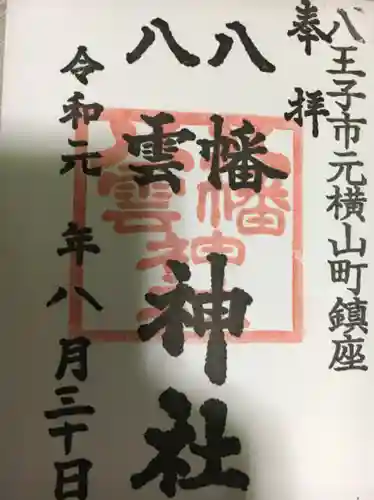 八王子市元横山町鎮座
奉拝
八幡
八雲
神社
令和元年八月三十日